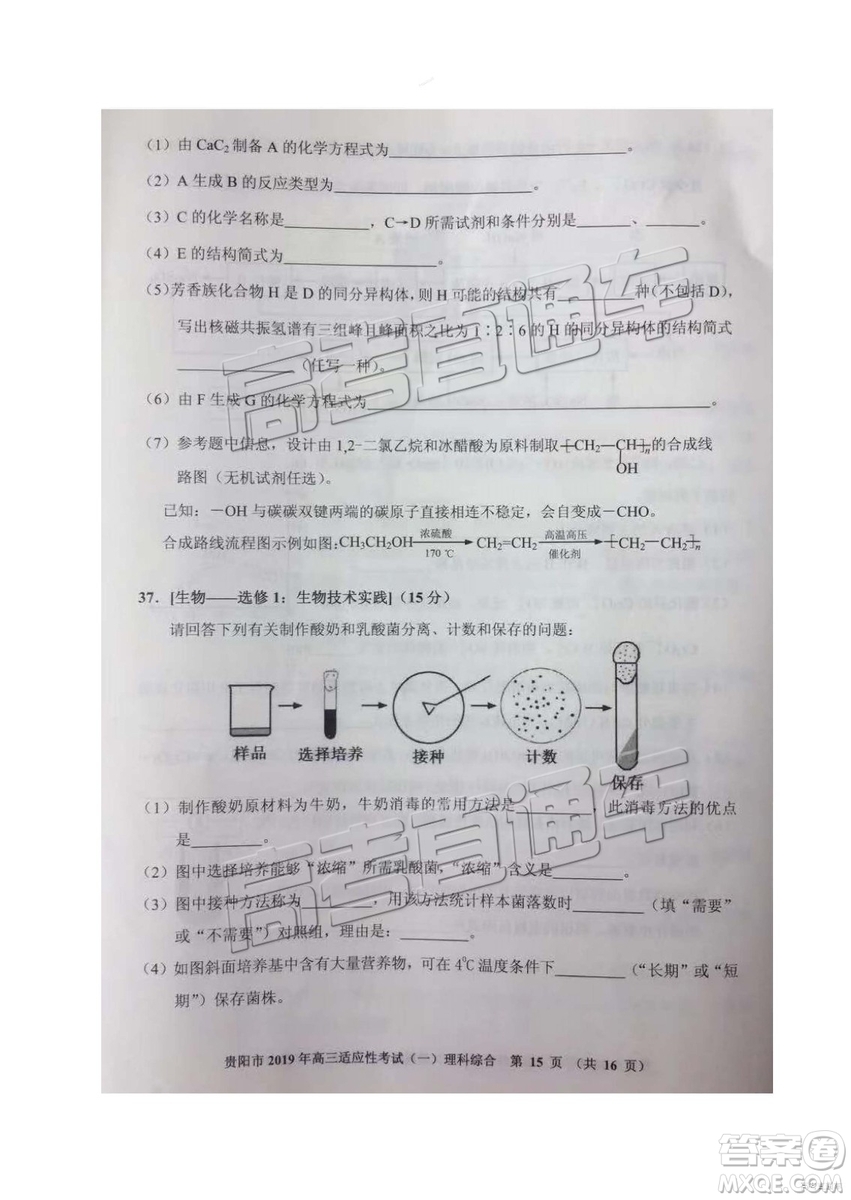 （1）由 CaC₂ 制备 A 的化学方程式为____________。
（2）A 生成 B 的反应类型为____________。
（3）C 的化学名称是________，C→D 所需试剂和条件分别是______、______。
（4）E 的结构简式为____________。
（5）芳香族化合物 H 是 D 的同分异构体，则 H 可能的结构共有________种（不包括 D），
写出核磁共振氢谱有三组峰且峰面积之比为 1∶2∶6 的 H 的同分异构体的结构简式
____________（任写一种）。
（6）由 F 生成 G 的化学方程式为____________。
（7）参考题中信息，设计由 1,2-二氯乙烷和冰醋酸为原料制取 ⁅CH₂—CH⁆n 的合成线
OH
路图（无机试剂任选）。
已知：—OH 与碳碳双键两端的碳原子直接相连不稳定，会自变成—CHO。
合成路线流程图示例如图：CH₃CH₂OH 浓硫酸 170 ℃ → CH₂=CH₂ 高温高压 催化剂 → ⁅CH₂—CH₂⁆n
37．[生物——选修 1：生物技术实践]（15 分）
请回答下列有关制作酸奶和乳酸菌分离、计数和保存的问题：
样品 选择培养 接种 计数 保存
（1）制作酸奶原材料为牛奶，牛奶消毒的常用方法是________，此消毒方法的优点
是________。
（2）图中选择培养能够“浓缩”所需乳酸菌，“浓缩”含义是________。
（3）图中接种方法称为________，用该方法统计样本菌落数时________（填“需要”
或“不需要”）对照组，理由是：________。
（4）如图斜面培养基中含有大量营养物，可在 4⁰C 温度条件下________（“长期”或“短
期”）保存菌株。
贵阳市 2019 年高三适应性考试（一）理科综合 第 15 页 （共 16 页）
高考直通车
高考直通车
答案圈
MXQE.COM